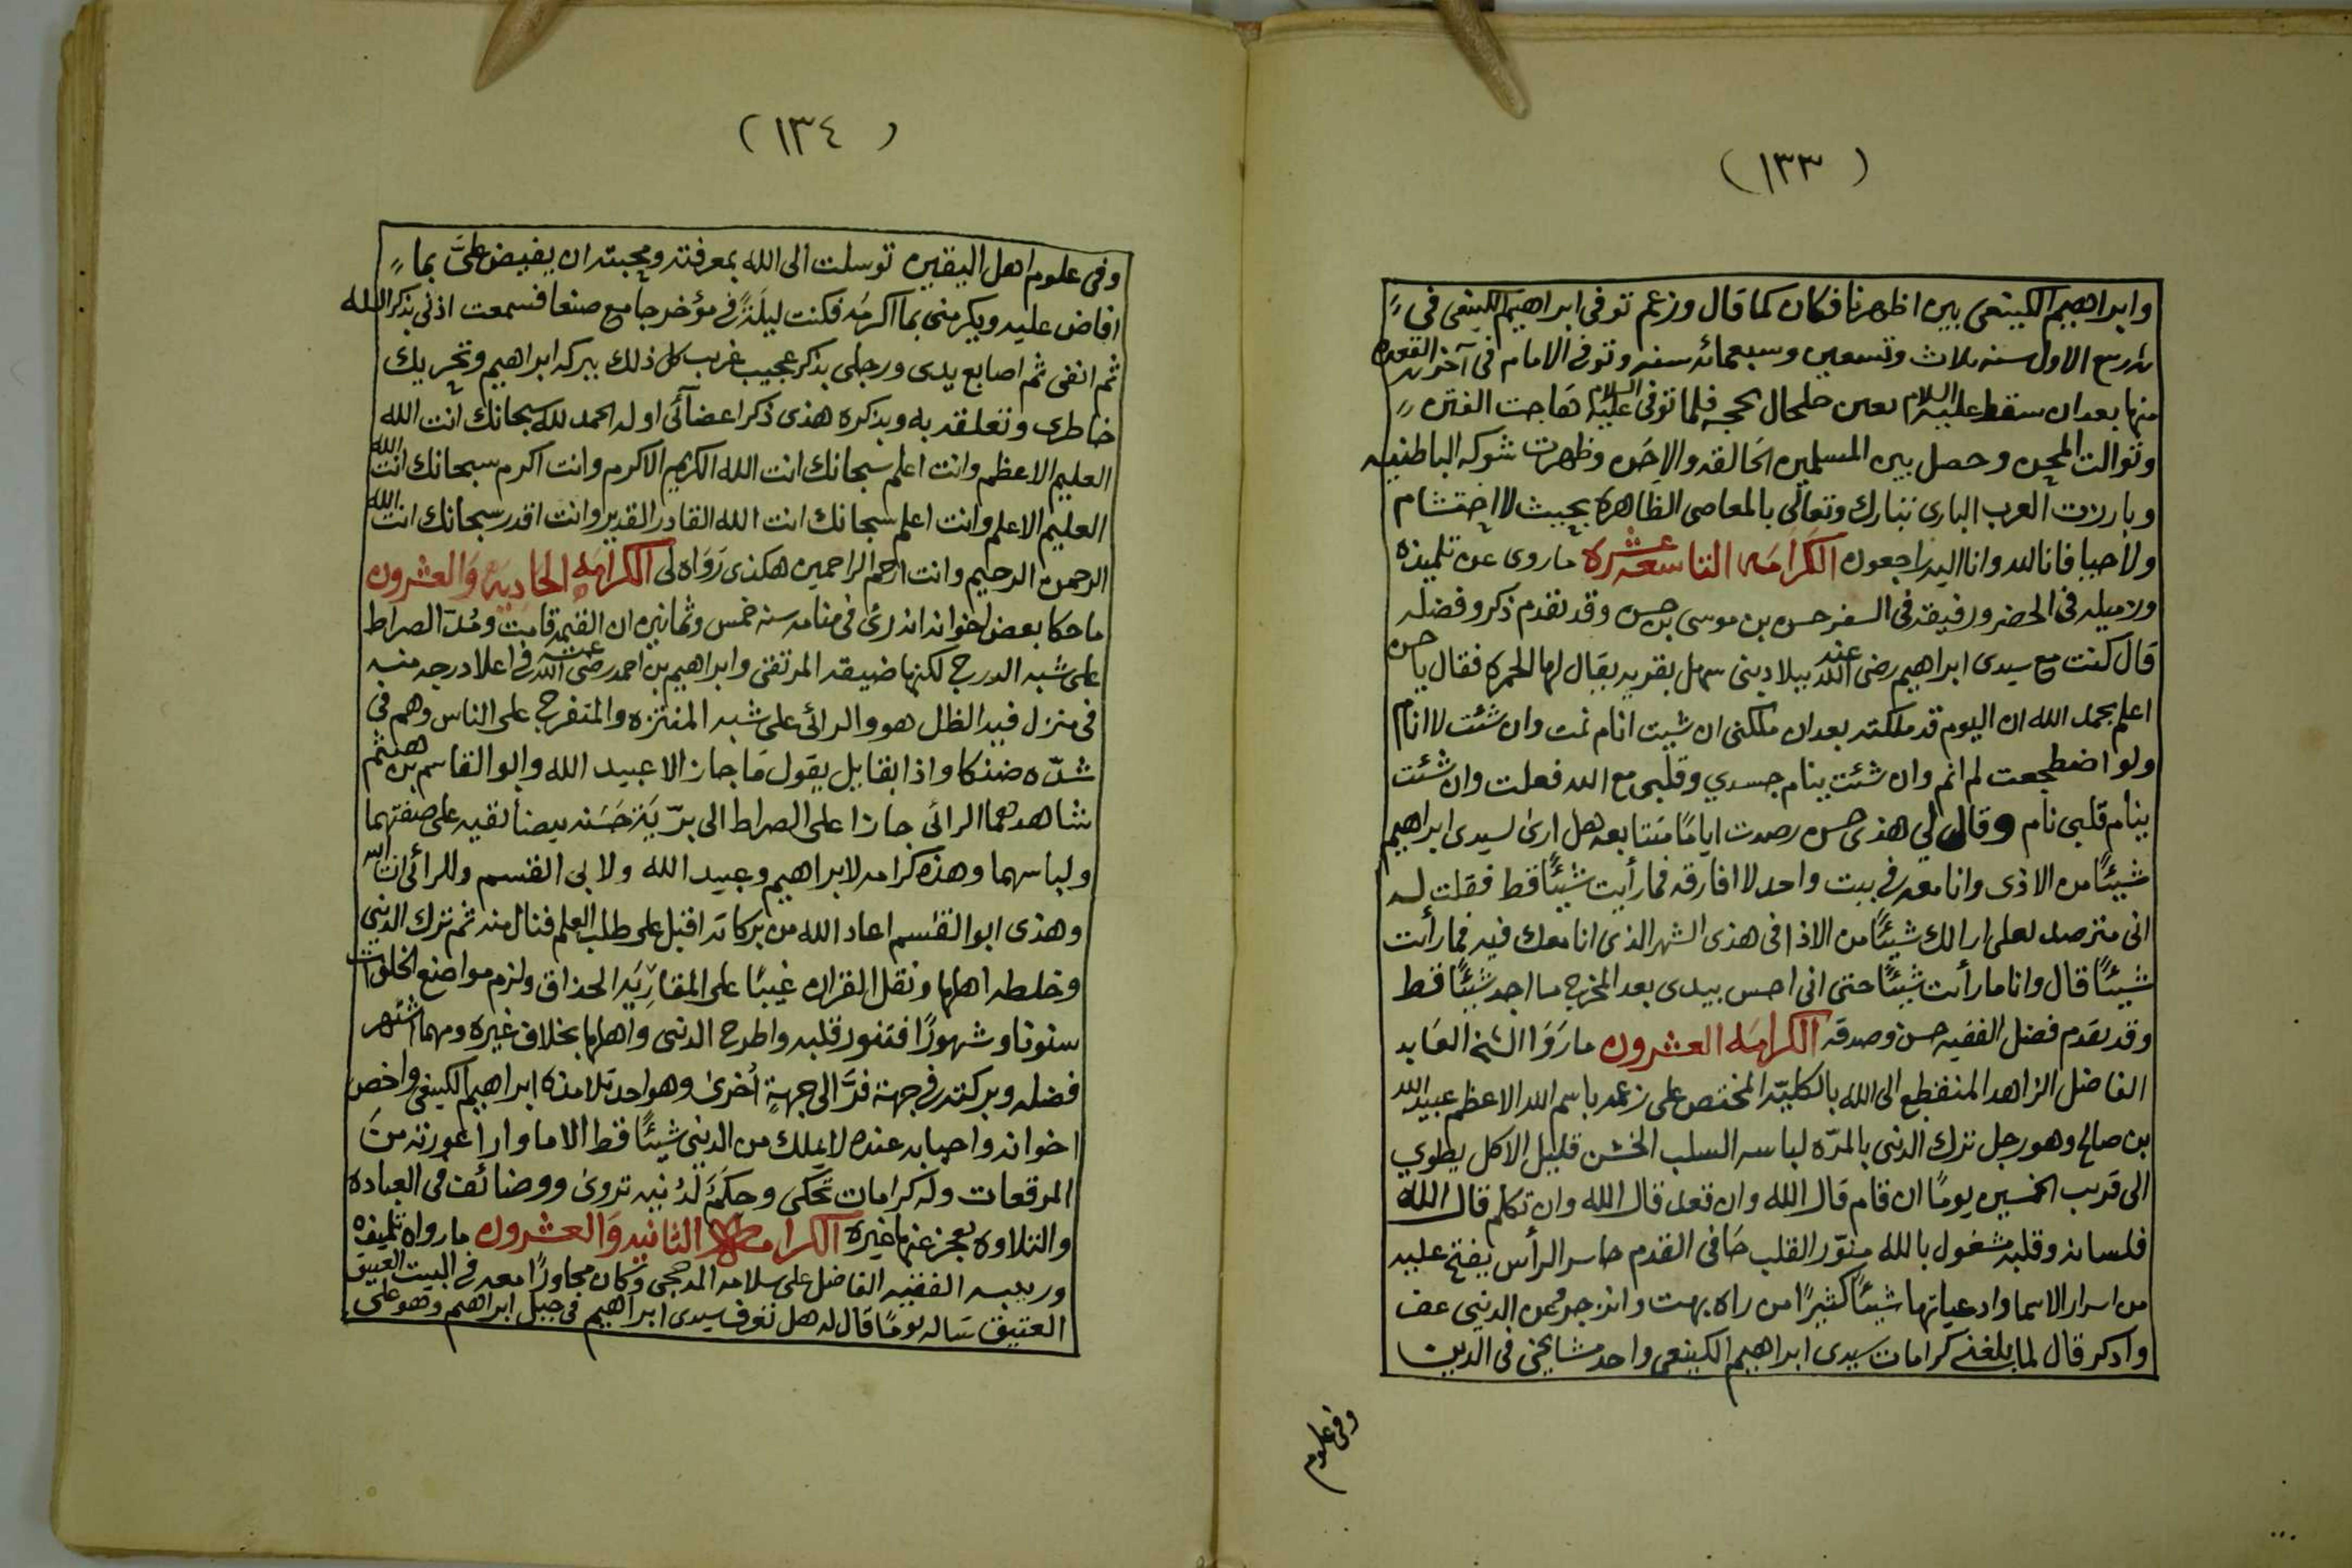 (١٣٣)
وابراهيم الكينعى بين اظهرنا فكان كما قال وزعم توفى ابراهيم الكينعى فى
ربيع الاول سنه ثلاث وتسعين وسبعمائه سنه وتوفى الامام فى آخر القعده
منها بعد ان سقط عليه السلام بعين حلحال بحجه فلما توفى عليه السلام هاجت الفتن
وتوالت المحن وحصل بين المسلمين الحالقه والاحن وظهرت شوكه الباطنيه
وبارزت العرب البارى تبارك وتعالى بالمعاصى الظاهره بحيث لا احتشام
ولا حيا فانا لله وانا اليه راجعون الكرامه التاسعه عشره ما روى عن تلميذه
وزميله فى الحضر ورفيقه فى السفر حسن بن موسى بن حسن وقد تقدم ذكر وفضله
قال كنت مع سيدى ابراهيم رضى الله عنه ببلاد بنى سهل بقريه يقال لها الحمره فقال يا حسن
اعلم بحمد الله ان اليوم قد ملكته بعد ان ملكنى ان شيت انام نمت وان شئت لا انام
ولو اضطجعت لم انم وان شئت ينام جسدي وقلبى مع الله فعلت وان شئت
ينام قلبى نام وقال لي هذى حسن رصدت ايامًا متتابعه هل ارى لسيدى ابراهيم
شيئًا من الاذى وانا معه فى بيت واحد لا افارقه فما رأيت شيئًا قط فقلت له
انى مترصد لعلى ارا لك شيئًا من الاذا فى هذى الشهر الذى انا معك فيه فما رأيت
شيئًا قال وانا ما رأيت شيئًا حتى انى احس بيدى بعد المخرج ما اجد شيئًا قط
وقد تقدم فضل الفقيه حسن وصدقه الكرامه العشرون ما رَوَا الشخ العابد
الفاضل الزاهد المنقطع الى الله بالكليّه المختص على زعمه باسم الله الاعظم عبيد الله
بن صالح وهو رجل ترك الدنى بالمرّه لباسه السلب الخشن قليل الاكل يطوي
الى قريب الخمسين يومًا ان قام قال الله وان قعد قال الله وان تكلم قال الله
فلسانه وقلبه مشغول بالله منوّر القلب حَافى القدم حاسر الرأس يفتح عليه
من اسرار الاسما وادعياتها شيئًا كثيرًا من راه بهت وانزجر عن الدنيى عف
وادكر قال لما بلغنى كرامات سيدى ابراهيم الكينعى واحد مشايخى فى الدين
وفى علوم
(١٣٤)
وفى علوم اهل اليقين توسلت الى الله بمعرفته ومحبته ان يفيض علىَّ بما
افاض عليه ويكرمنى بما اكرمَه فكنت ليلَةً فى مؤخر جامع صنعا فسمعت اذنى بذكر الله
ثم انفى ثم اصابع يدى ورجلى بذكر عجيب غريب كل ذلك ببركه ابراهيم وتحريك
خاطرى وتعلقه به وبذكره هذى ذكر اعضآئى اوله الحمد لله سبحانك انت الله
العليم الاعظم وانت اعلم سبحانك انت الله الكريم الاكرم وانت اكرم سبحانك انت الله
العليم الاعلم وانت اعلم سبحانك انت الله القادر القدير وانت اقدر سبحانك انت الله
الرحمن الرحيم وانت ارحم الراحمين هكذى رَوَاه لى الكرامَه الحَاديه وَالعشرون
ما حكا بعض اخوانه انه رئ فى منامه سنه خمس وثمانين ان القيمه قامت ومُدّ الصراط
على شبه الدرج لكنها ضيقه المرتقى وابراهيم بن احمد رضى الله عنه فى اعلا درجه منه
فى منزل فيه الظل هو والرائى على شبه المنتزه والمتفرج على الناس وهم فى
شدّه ضنكا واذا بقايل يقول مَا جاز الا عبيد الله وابو القاسم بن ثم
شاهدهما الرائى جازا على الصراط الى برّيَة حَسَنه بيضا نقيه على صفتهما
ولباسهما وهذه كرامه لابراهيم وعبيد الله ولابى القسم وللرائى
وهذى ابو القسم اعاد الله من بركاته اقبل على طلب العلم فنال منه ثم ترك الدنيى
وخلطه اهلها ونقل القران غيبًا على المقارِيَه الحذاق ولزم مواضع الخلوات
سنونا وشهورًا فتنور قلبه واطرح الدنى واهلها بخلاف غيره ومهما اشتهر
فضله وبركته فى جهة فرَّ الى جهةٍ اُخرى وهو احد تلامذه ابراهيم الكينعى واخص
اخوانه واحبابه عنده لا يملك من الدنيى شيئًا قط الا ما وارا عورته من
المرقعات وله كرامات تُحكى وحكمَ لدُنيه تروى ووضائف فى العباده
والتلاوه يعجز عنها غيره الكرامه الثانيه وَالعشرون ما رواه تلميذه
وربيبه الفقيه الفاضل على سلامه المدحجى وكان مجاورًا معه فى البيت العتيق
العتيق سَاله يومًا قال له هل تعرف سيدى ابراهيم فى جبل ابراهيم وهو على